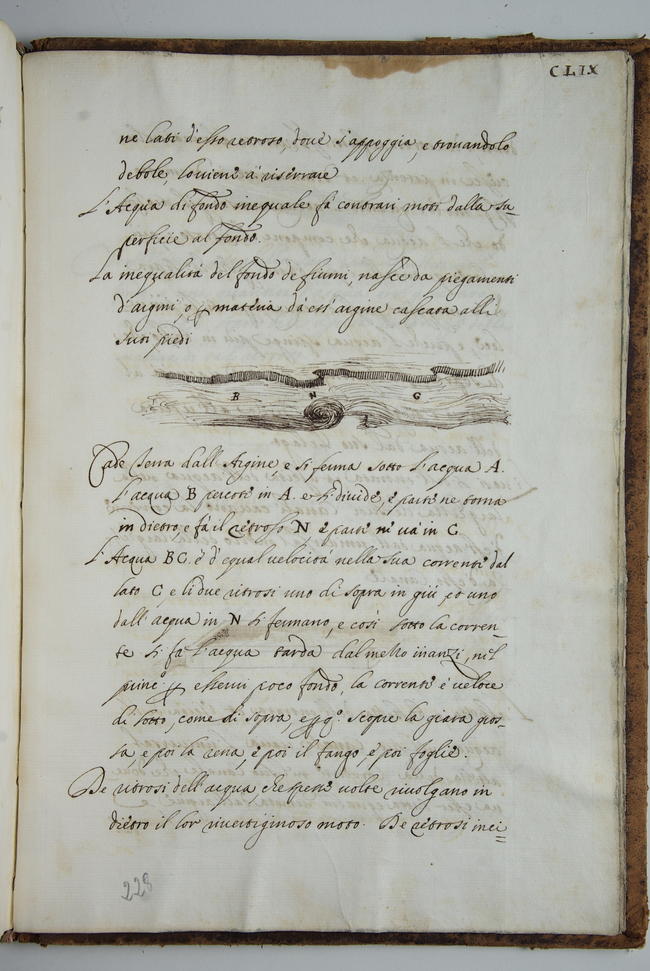 CLIX
ne lati d'esso retroso, dove s'appoggia, e trovandolo
debole, lo viene à riserrare
L'Acqua di fondo ineguale fà contrari moti dalla su=
perficie al fondo.
La inequalità del fondo de fiumi, nasce da piegamenti
d'argini, o materia da ess' argine cascata alli
suoi piedi
B N G
Cade terra dall'Argine, e si ferma sotto l'acqua A.
l'acqua B percote in A. e si divide, e parte ne torna
in dietro, e fà il retroso N e parte ne và in C
L'Acqua BC. è d'equal velocità nella sua corrente dal
lato C, e li due retrosi uno di sopra in giù, et uno
dall'acqua in N si fermano, e così sotto la corren=
te si fà l'acqua tarda dal mezzo inanzi, nel
princ.º esservi poco fondo, la corrente è veloce
di sotto, come di sopra, e scopre la giara gros=
sa, e poi la rena, e poi il fango, e poi foglie.
De retrosi dell'acqua, che spesse volte rivolgano in
dietro il lor revertiginoso moto. De retrosi inci=
228